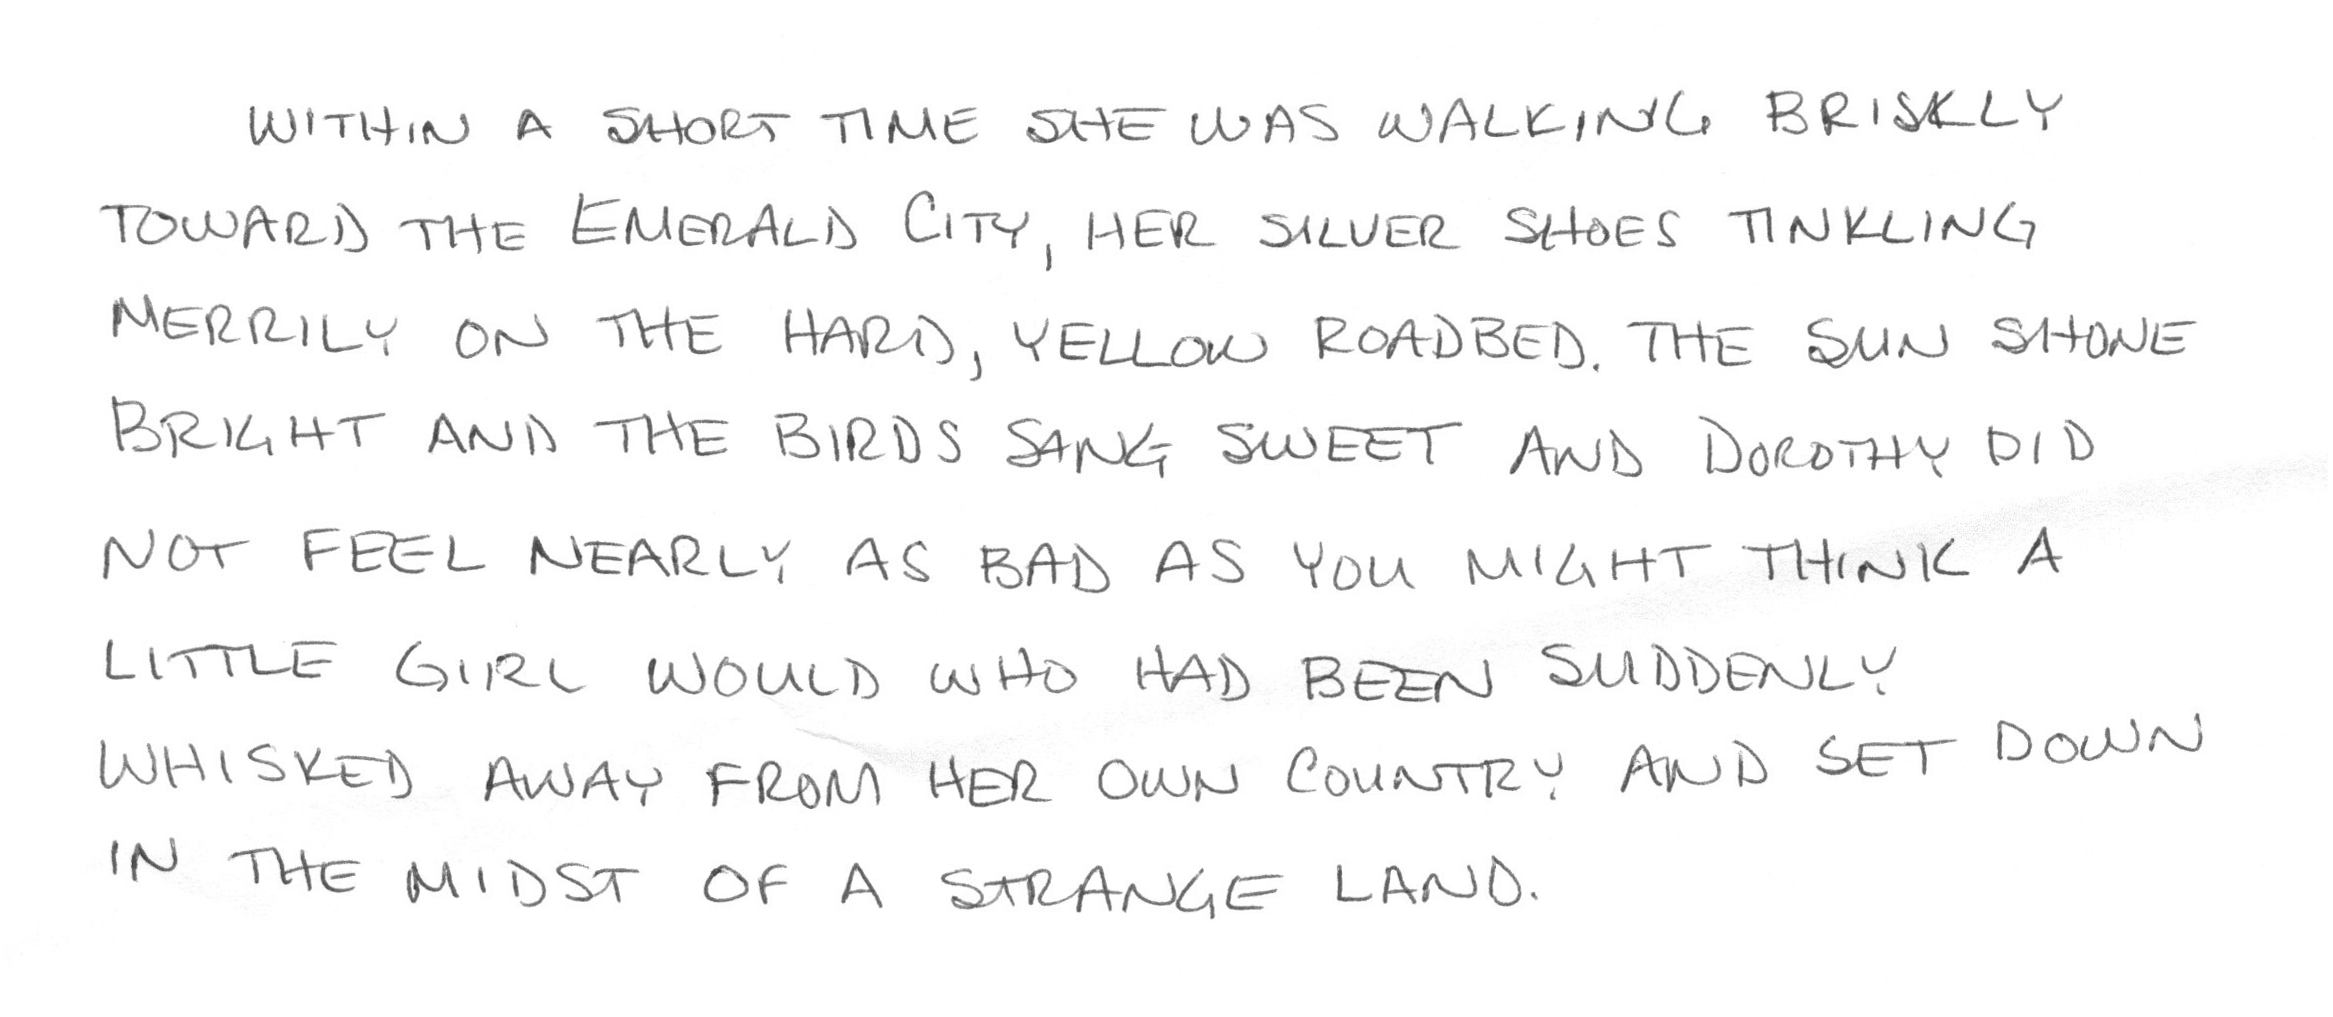 WITHIN A SHORT TIME SHE WAS WALKING BRISKLY
TOWARD THE EMERALD CITY, HER SILVER SHOES TINKLING
MERRILY ON THE HARD, YELLOW ROADBED. THE SUN SHONE
BRIGHT AND THE BIRDS SANG SWEET AND DOROTHY DID
NOT FEEL NEARLY AS BAD AS YOU MIGHT THINK A
LITTLE GIRL WOULD WHO HAD BEEN SUDDENLY
WHISKED AWAY FROM HER OWN COUNTRY AND SET DOWN
IN THE MIDST OF A STRANGE LAND.